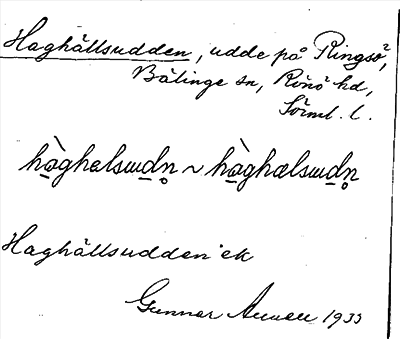 Haghällsudden, udde på Ringsö,
Bälinge sn, Rönö hd,
Sörml. l.
hàghælsɯdn̥ ~ hàghælsɯdn̥
Haghällsudden ek
Gunnar 1933